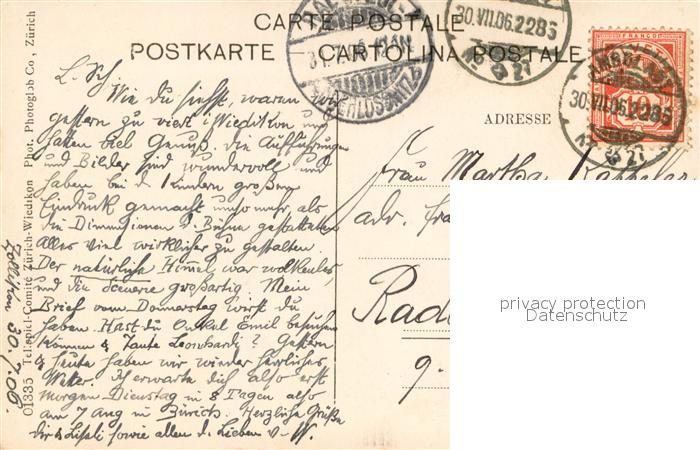 CARTE POSTALE
POSTKARTE CARTOLINA POSTALE
30.VII.06.2285
30.VII.06.2285
FRANCO
10
ADRESSE
L. Sch.
Wie du siehst, waren wir
gestern zu viert i. Wiedikon und
hatten viel Genuß. Die Aufführungen
und Bilder sind wundervoll und
haben bei d. Kindern großen
Eindruck gemacht umso mehr, als
die Dimensionen d. Bühne gestatteten
Alles viel wirklicher zu gestalten.
Der natürliche Himmel war wolkenlos
und die Scenerie großartig. Mein
Brief vom Donnerstag wirst du
haben. Hast du Onkel Emil besuchen
können & Tante Leonhardi? Gestern
& heute haben wir wieder herrliches
Wetter. Ich erwarte dich also erst
morgen Dienstag in 8 Tagen also
am 7 Aug in Zürich. Herzliche Grüße
dir & Lisli sowie allen d. Lieben v. W.
Frau Martha
adr. Fra
Rad
9.
Zollikon 30.7.06.
01335 Tellspiel-Comité Zürich-Wiedikon Phot. Photoglob Co., Zürich
privacy protection
Datenschutz